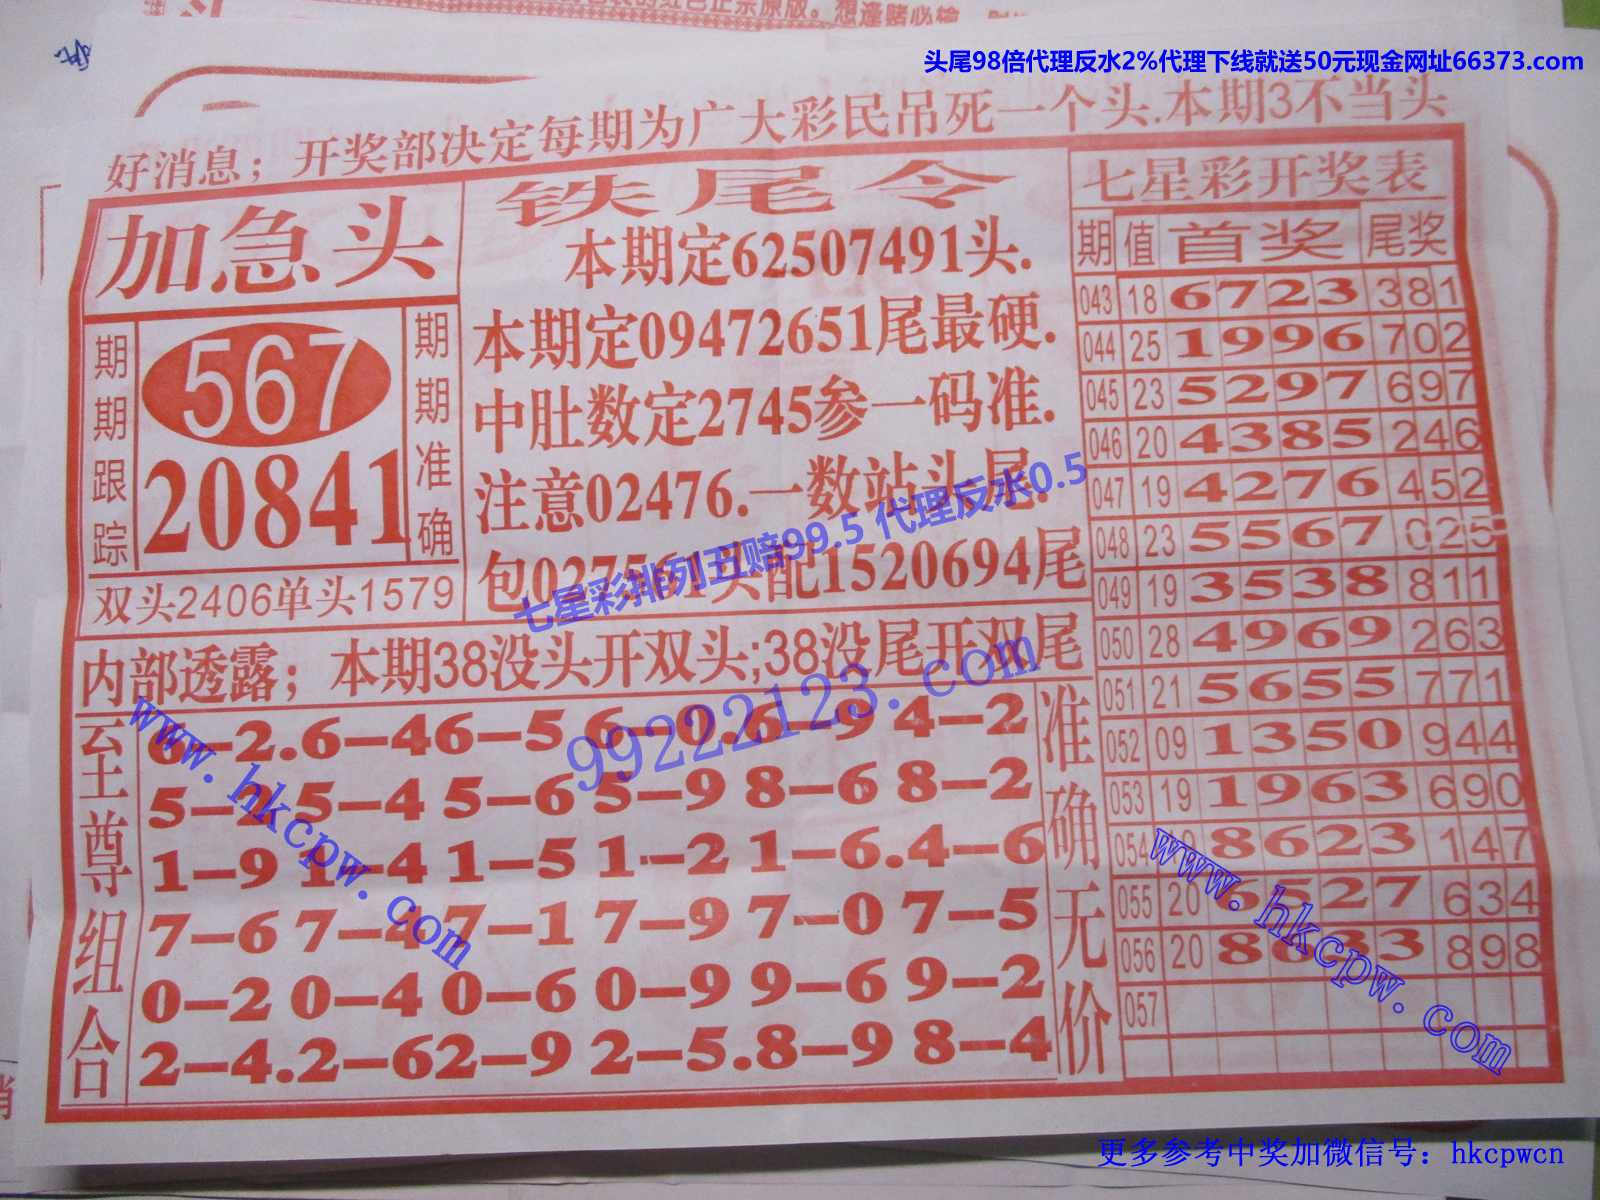 头尾98倍代理反水2%代理下线就送50元现金网址66373.com
好消息；开奖部决定每期为广大彩民吊死一个头.本期3不当头
加急头
期期跟踪
567
20841
期期准确
双头2406单头1579
铁尾令
本期定62507491头.
本期定09472651尾最硬.
中肚数定2745参一码准.
注意02476.一数站头尾.
包027561头配1520694尾
七星彩排列五赔99.5 代理反水0.5
内部透露；本期38没头开双头;38没尾开双尾
99222123.com
www.hkcpw.com
至尊组合
6–2.6–46–5 6–0.6–9 4–2
5–2 5–4 5–6 5–9 8–6 8–2
1–9 1–4 1–5 1–2 1–6.4–6
7–6 7–4 7–1 7–9 7–0 7–5
0–2 0–4 0–6 0–9 9–6 9–2
2–4.2–62–9 2–5.8–9 8–4
准确无价
七星彩开奖表
期 值 首奖 尾奖
043 18 6723 381
044 25 1996 702
045 23 5297 697
046 20 4385 246
047 19 4276 452
048 23 5567 025
049 19 3538 811
050 28 4969 263
051 21 5655 771
052 09 1350 944
053 19 1963 690
054 8623 147
055 20 6527 634
056 20 8633 898
057
www.hkcpw.com
更多参考中奖加微信号：hkcpwcn